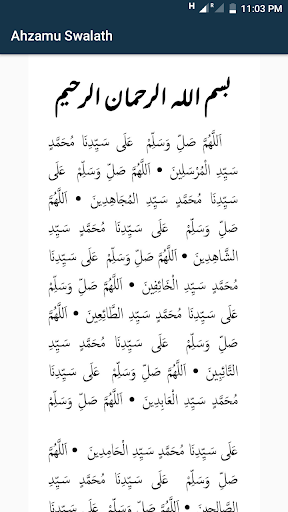 H R 11:03 PM
Ahzamu Swalath
بسم الله الرحمان الرحيم
اَللَّهُمَّ صَلِّ وَسَلِّمْ عَلَى سَيِّدِنَا مُحَمَّدٍ
سَيِّدِ الْمُرْسَلِينَ • اَللَّهُمَّ صَلِّ وَسَلِّمْ عَلَى
سَيِّدِنَا مُحَمَّدٍ سَيِّدِ الْمُجَاهِدِينَ • اَللَّهُمَّ
صَلِّ وَسَلِّمْ عَلَى سَيِّدِنَا مُحَمَّدٍ سَيِّدِ
الشَّاهِدِينَ • اَللَّهُمَّ صَلِّ وَسَلِّمْ عَلَى سَيِّدِنَا
مُحَمَّدٍ سَيِّدِ الْخَائِفِينَ • اَللَّهُمَّ صَلِّ وَسَلِّمْ
عَلَى سَيِّدِنَا مُحَمَّدٍ سَيِّدِ الطَّائِعِينَ • اَللَّهُمَّ
صَلِّ وَسَلِّمْ عَلَى سَيِّدِنَا مُحَمَّدٍ سَيِّدِ
التَّائِبِينَ • اَللَّهُمَّ صَلِّ وَسَلِّمْ عَلَى سَيِّدِنَا
مُحَمَّدٍ سَيِّدِ الْعَابِدِينَ • اَللَّهُمَّ صَلِّ وَسَلِّمْ
عَلَى سَيِّدِنَا مُحَمَّدٍ سَيِّدِ الْحَامِدِينَ • اَللَّهُمَّ
صَلِّ وَسَلِّمْ عَلَى سَيِّدِنَا مُحَمَّدٍ سَيِّدِ
الصَّالِحِينَ • اَللَّهُمَّ صَلِّ وَسَلِّمْ عَلَى سَيِّدِنَا